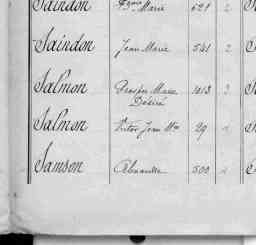 Saindon Marie 621 2
Saindon Jean Marie 541 2
Salmon Prosper Marie 1013 2
Désiré
Salmon Victor Jean Mie 29 1
Samson Alexandre 500 1